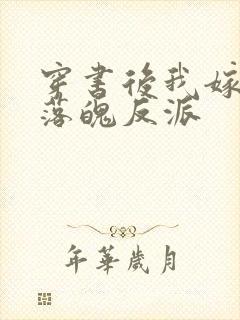 穿書後我嫁
落魄反派
年華歲月